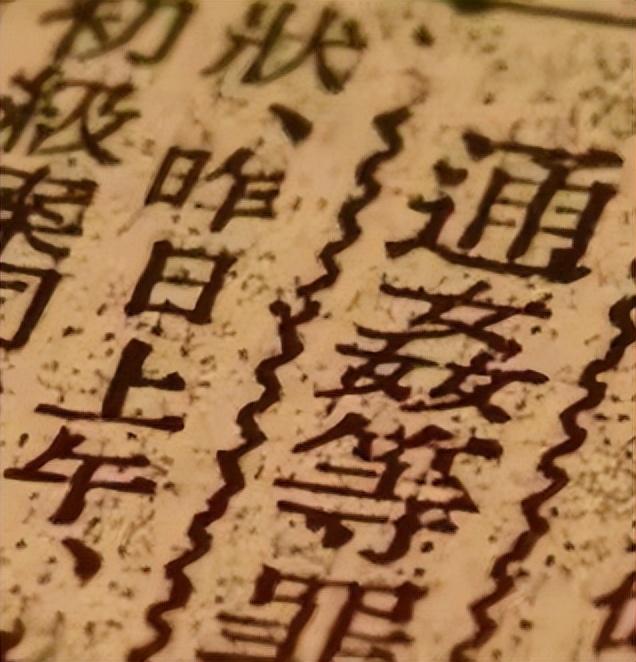 通姦等罪
狀、昨日上午、
初級